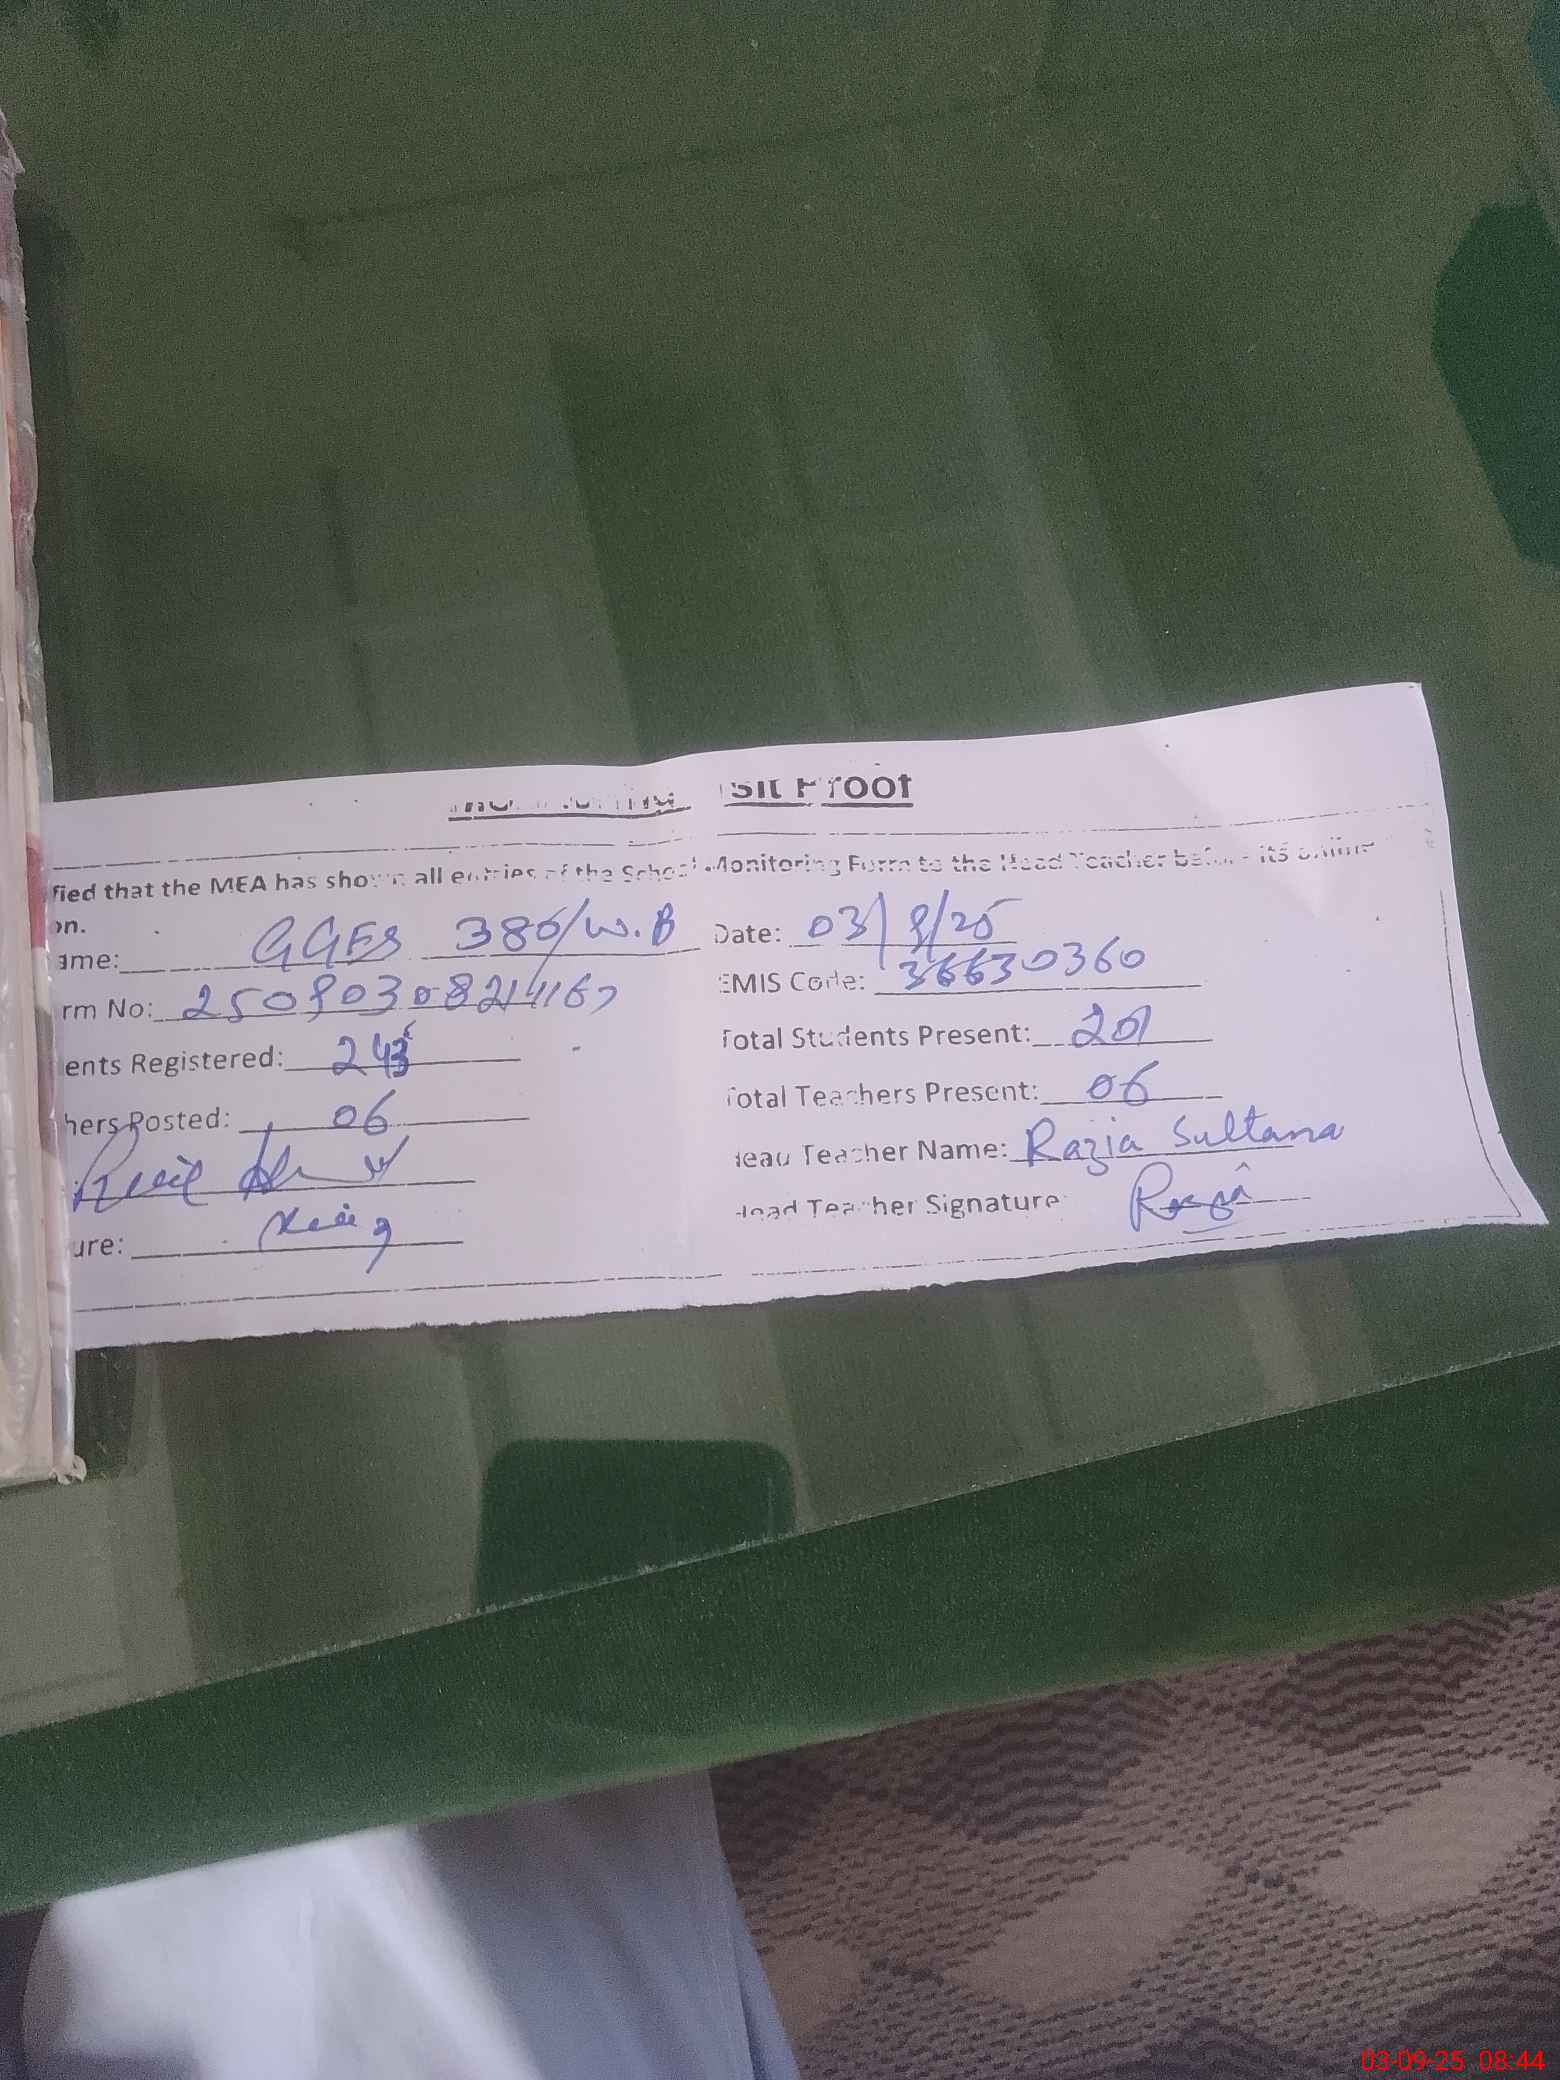 sit Proof
fied that the MEA has shown all entries of the School Monitoring Form to the Head Teacher before its online
on.
ame: GGES 386/W.B Date: 03/9/25
rm No: EMIS Code: 36630360
ents Registered: Total Students Present: 201
hers Posted: 06 Total Teachers Present: 06
Head Teacher Name: Razia Sultana
ure: Head Teacher Signature
03-09-25 08:44